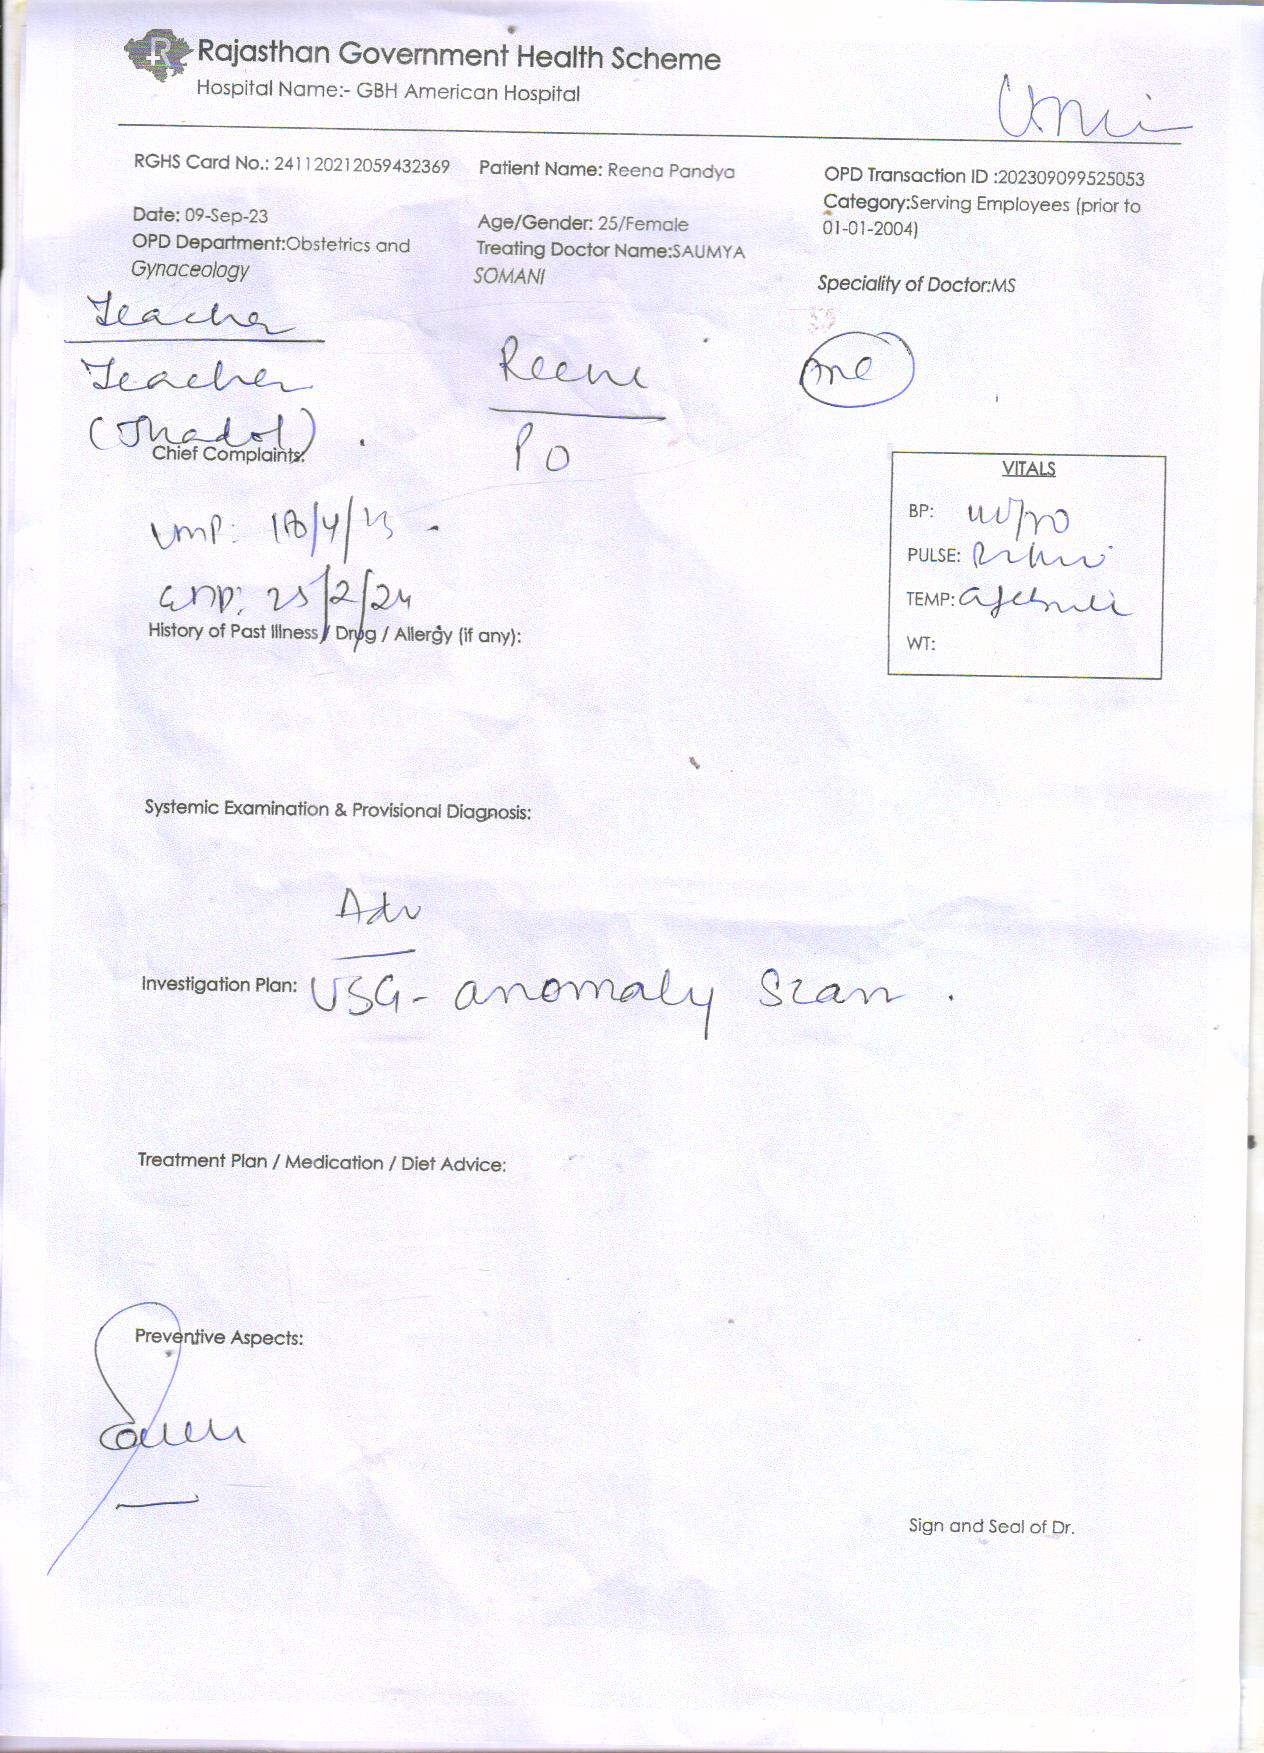 Rajasthan Government Health Scheme
Hospital Name:- GBH American Hospital
RGHS Card No.: 241120212059432369
Patient Name: Reena Pandya
OPD Transaction ID :202309099525053
Category:Serving Employees (prior to
01-01-2004)
Date: 09-Sep-23
Age/Gender: 25/Female
OPD Department:Obstetrics and
Gynaceology
Treating Doctor Name:SAUMYA
SOMANI
Speciality of Doctor:MS
Teacher
Teacher
(Jhadol)
Reena
P0
Chief Complaints:
LMP: 18/4/23
EDD: 25/2/24
VITALS
BP:
PULSE:
TEMP: afebrile
WT:
History of Past Illness / Drug / Allergy (if any):
Systemic Examination & Provisional Diagnosis:
Adv
Investigation Plan: USG- anomaly Scan .
Treatment Plan / Medication / Diet Advice:
Preventive Aspects:
Sign and Seal of Dr.